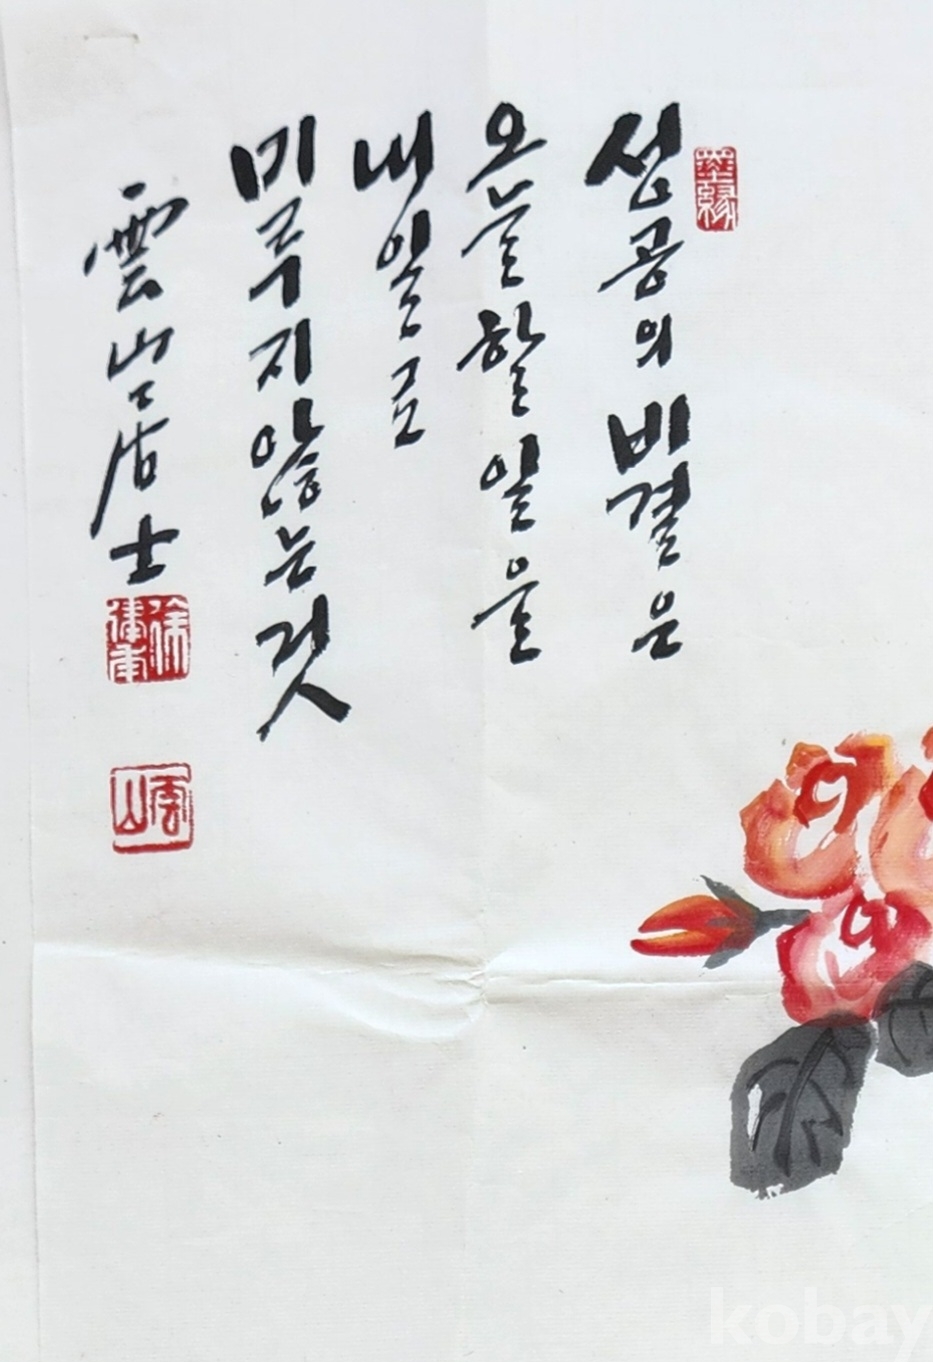 墨緣
성공의 비결은
오늘 할 일을
내일로
미루지 않는 것
雲山居士
雲山
kobay